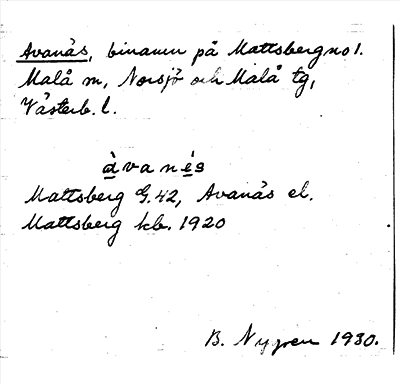 Avanäs, binamn på Mattsberg no 1.
Malå sn, Norsjö och Malå tg,
Västerb. l.
àvanés
Mattsberg G. 42, Avanäs el.
Mattsberg kb. 1920
B. Nygren 1930.